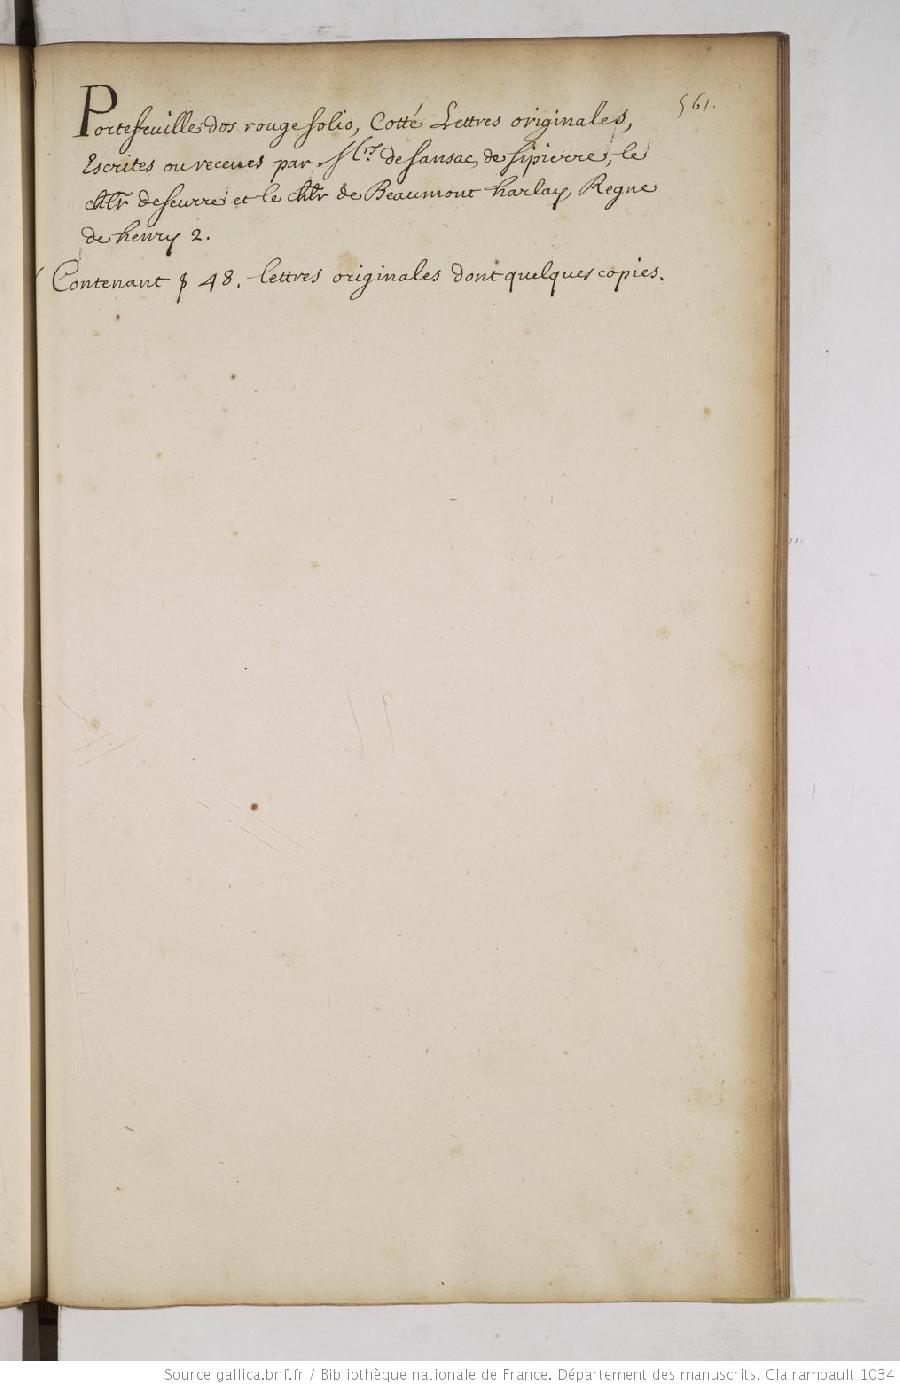 561.
Portefeuille dos rouge folio, Cotté Lettres originales,
Escrites ou receues par Mrs de Sansac, de Sipierre, le
chlr de seurre et le chlr de Beaumont harlay Regne
de henry 2.
Contenant 48. lettres originales dont quelques copies.
Source gallica.bnf.fr / Bibliothèque nationale de France. Département des manuscrits. Clairambault 1034